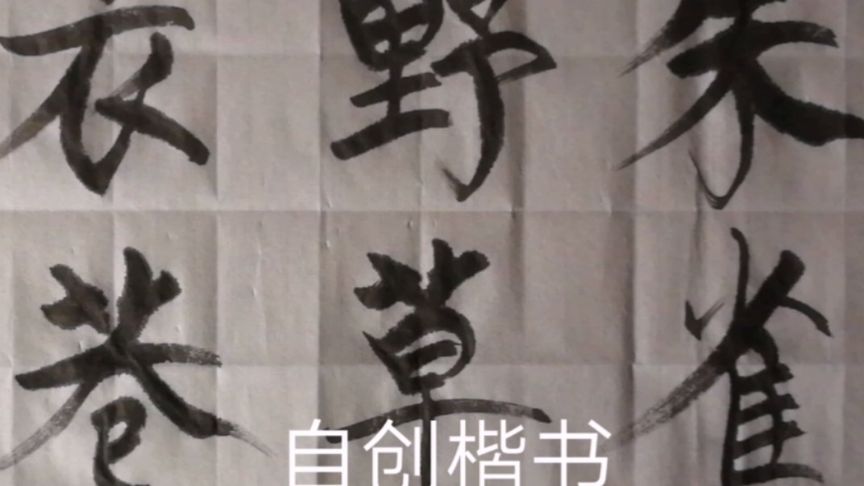 朱雀
野草
衣巷
自创楷书